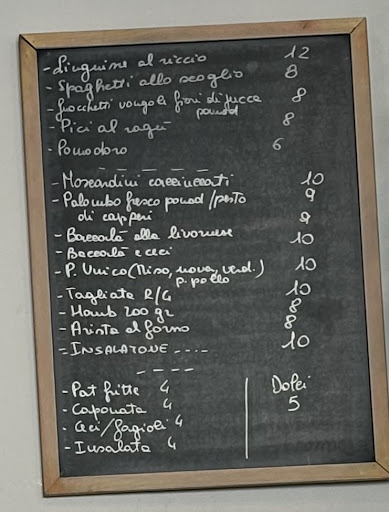 - Linguine al riccio 12
- Spaghetti allo scoglio 8
- Gnocchetti vongole fiori di zucca 8
pomod
- Pici al ragù 8
- Pomodoro 6
- Moscardini caccinccati 10
- Palombo fresco pomod/pesto 9
di capperi
- Baccalà alla livornese 9
- Baccalà e ceci 10
- P. Unico (Riso, uova, verd.) 10
p. pollo
- Tagliata R/G 10
- Hamb 200 gr 8
- Arista al forno 8
- INSALATONE ---- 10
- Pat fritte 4
- Caponata 4
- Ceci/fagioli 4
- Insalata 4
Dolci
5